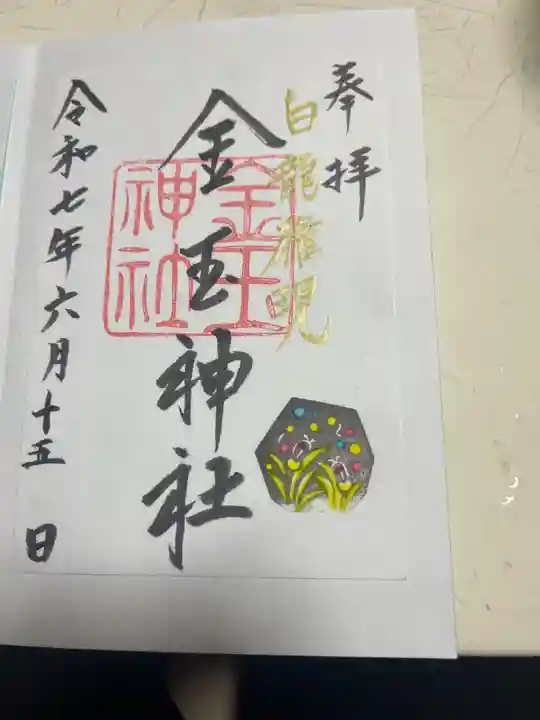 奉拝
白龍権現
金玉神社
金玉
神社
令和七年六月十五日